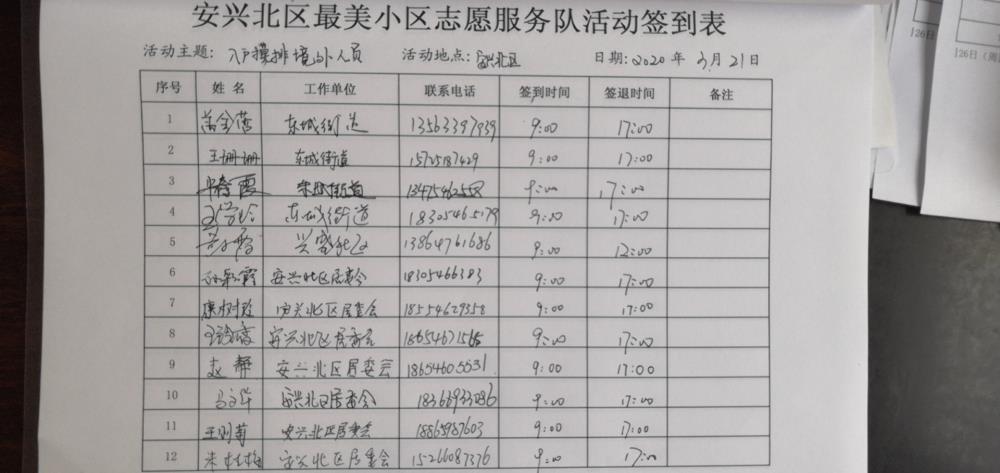 安兴北区最美小区志愿服务队活动签到表
活动主题：入户摸排境外人员 活动地点：安兴北区 日期：2020年3月21日
序号 姓名 工作单位 联系电话 签到时间 签退时间 备注
1 东城街道 13563397939 9:00 17:00
2 王珊珊 东城街道 15725187429 9:00 17:00
3 东城街道 13475462558 9:00 17:00
4 东城街道 18305465179 9:00 17:00
5 13864761686 9:00 12:00
6 孙彩霞 安兴北区居委会 18305466383 9:00 17:00
7 康树珍 安兴北区居委会 18554629358 9:00 17:00
8 安兴北区居委会 9:00 17:00
9 赵静 安兴北区居委会 18654605531 9:00 17:00
10 安兴北区居委会 9:00 17:00
11 安兴北区居委会 18865987603 9:00 17:00
12 安兴北区居委会 15266087376 9:00 17:00
126日
126日（周